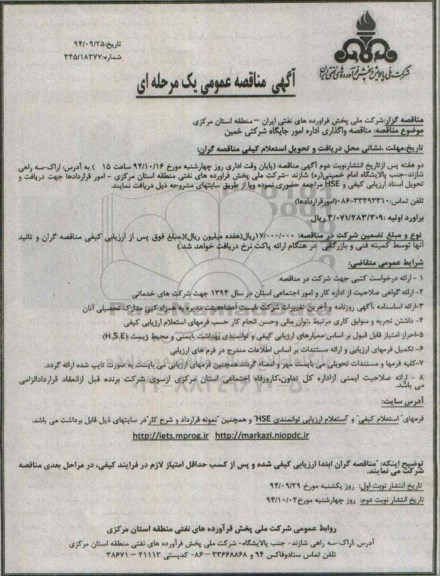 تاریخ:۹۴/۰۹/۲۵
شماره:۳۴۵/۱۸۲۷۷
شرکت ملی پالایش و پخش فرآورده های نفتی ایران
آگهی مناقصه عمومی یک مرحله ای
مناقصه گزار:شرکت ملی پخش فراورده های نفتی ایران –منطقه استان مرکزی
موضوع مناقصه: مناقصه واگذاری اداره امور جایگاه شرکتی خمین
تاریخ،مهلت ،نشانی محل دریافت و تحویل استعلام کیفی مناقصه گران:
دو هفته پس ازتاریخ انتشارنوبت دوم آگهی مناقصه (پایان وقت اداری روز چهارشنبه مورخ ۹۴/۱۰/۱۶ ساعت ۱۵ ) به آدرس: اراک–سه راهی
شازند–جنب پالایشگاه امام خمینی(ره) شازند –شرکت ملی پخش فراورده های نفتی منطقه استان مرکزی – امور قراردادها جهت دریافت و
تحویل اسناد ارزیابی کیفی و HSE مراجعه حضوری نموده ویا از طریق سایتهای مشروحه ذیل دریافت نمایند.
تلفن تماس:۳۳۴۹۳۳۱۰-۰۸۶(امورقراردادها)
براورد اولیه :۳/۰۷۱/۲۸۳/۳۰۹ ریال
نوع و مبلغ تضمین شرکت در مناقصه: ۱۷/۰۰۰/۰۰۰ریال(هفده میلیون ریال)(مبلغ فوق پس از ارزیابی کیفی مناقصه گران و تائید
آنها توسط کمیته فنی و بازرگانی در هنگام ارائه پاکت نرخ دریافت خواهد شد.)
شرایط عمومی متقاضی:
۱ – ارائه درخواست کتبی جهت شرکت در مناقصه
۲– ارائه گواهی صلاحیت از اداره کار و امور اجتماعی استان در سال ۱۳۹۴ جهت شرکت های خدماتی
۳–ارائه اساسنامه ،آگهی روزنامه و آخرین تغییرات شرکت ولیست اعضاء هیئت مدیره به همراه کپی مدارک تحصیلی آنان
۴– داشتن تجربه و سوابق کاری مرتبط ،توان مالی وحسن انجام کار حسب فرمهای استعلام ارزیابی کیفی
۵–احراز امتیاز قابل قبول بر اساس معیارهای ارزیابی کیفی و توانمندی بهداشت ایمنی و محیط زیست (H,S,E)
۶– تکمیل فرمهای ارزیابی و ارائه مستندات بر اساس اطلاعات مندرج در فرم های ارزیابی
۷–کلیه فرمها و مستندات تحویلی می بایست مهر و امضاء گردند همچنین فرمهای ارزیابی می بایست به صورت تایپ شده ارائه گردد.
۸ – ارائه صلاحیت ایمنی ازاداره کل تعاون،کارورفاه اجتماعی استان مرکزی ازسوی شرکت برنده قبل ازانعقاد قراردادالزامی
می باشد.
آدرس سایت:
فرمهای "استعلام کیفی" و "استعلام ارزیابی توانمندی HSE" و همچنین "نمونه قرارداد و شرح کار"در سایتهای ذیل قابل برداشت می باشد.
http://iets.mprog.ir http://markazi.niopdc.ir
توضیح اینکه: "مناقصه گران ابتدا ارزیابی کیفی شده و پس از کسب حداقل امتیاز لازم در فرایند کیفی، در مراحل بعدی مناقصه
شرکت می نمایند.
تاریخ انتشار نوبت اول: روز یکشنبه مورخ ۹۴/۰۹/۲۹
تاریخ انتشار نوبت دوم: روز چهارشنبه مورخ۹۴/۱۰/۰۲
روابط عمومی شرکت ملی پخش فرآورده های نفتی منطقه استان مرکزی
آدرس :اراک–سه راهی شازند– جنب پالایشگاه– شرکت ملی پخش فرآورده های نفتی منطقه استان مرکزی
تلفن تماس ستادوفاکس ۹۴ و ۳۳۶۶۸۸۶۸–۰۸۶ کدپستی ۴۱۱۱۳ – ۳۸۶۷۱